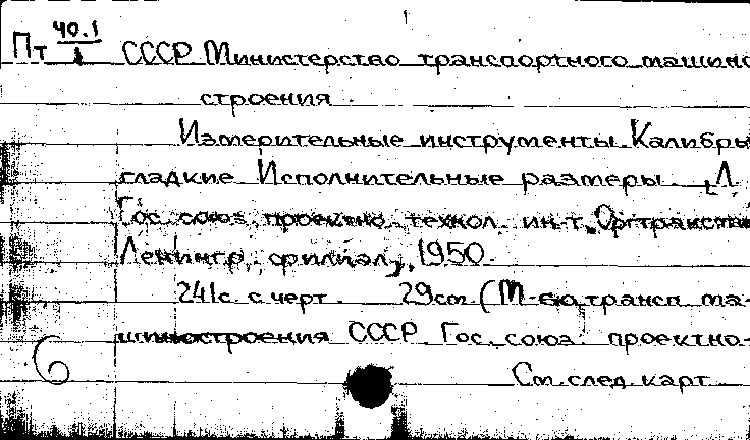 Пт 40.1/1 СССР Министерство транспортного машино
строения
Измерительные инструменты Калибры
гладкие Исполнительные размеры. Л.
Гос. союз. проектно. технол. ин-т "Оргтрансмаш
Ленингр. филиал, 1950.
241с. с черт. 29см (М-во трансп. ма-
шиностроения СССР. Гос. союз. проектно-
См. след. карт
6